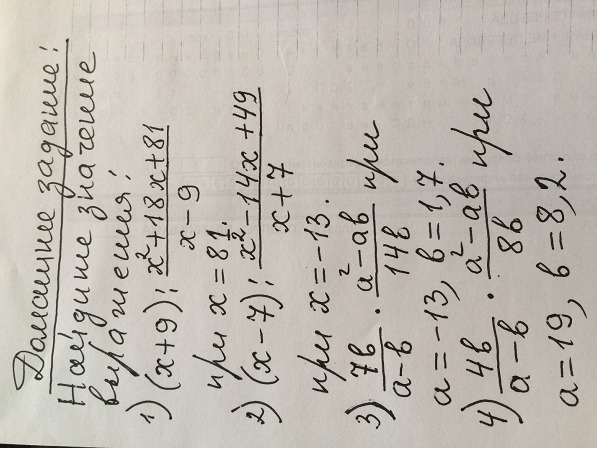 Домашние задание!
Найдите значение
выражения!
1) (x+9) : x²+18x+81 / x-9
при x = 81.
2) (x-7) : x²-14x+49 / x+7
при x = -13.
3) 7в / a-в · a²-aв / 14в при
a = -13, в = 1,7.
4) 4в / a-в · a²-aв / 8в при
a = 19, в = 8,2.